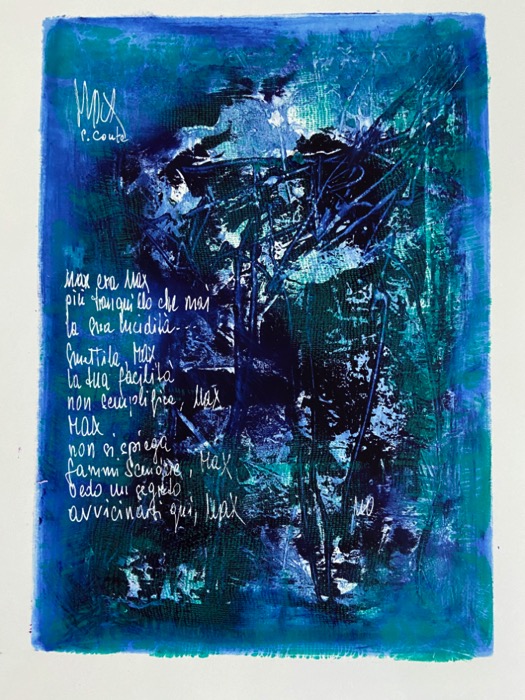 Max
P. Conte
Max era Max
più tranquillo che mai
la sua lucidità...
Smettila, Max
la tua facilità
non semplifica, Max
Max
non si spiega
fammi scendere, Max
vedo un segreto
avvicinati qui, Max